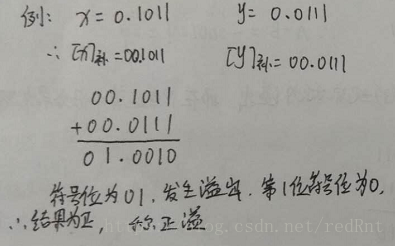 例: x=0.1011 y=0.0111
∴ [x]补=00.1011 [y]补=00.0111
00.1011
+00.0111
01.0010
符号位为01,发生溢出,第1位符号位为0,
∴结果为正, 称正溢
csdn.net/redRnt